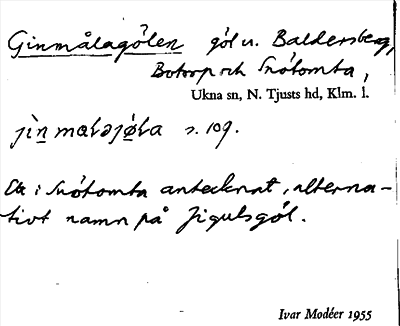 Ginmålagölen göl u. Baldersberg,
Botorp och Snötomta,
Ukna sn, N. Tjusts hd, Klm. l.
jìn mɑlɑjø̀lɑ s. 109.
I Snötomta antecknat, alterna-
tivt namn på Jigulsgöl.
Ivar Modéer 1955